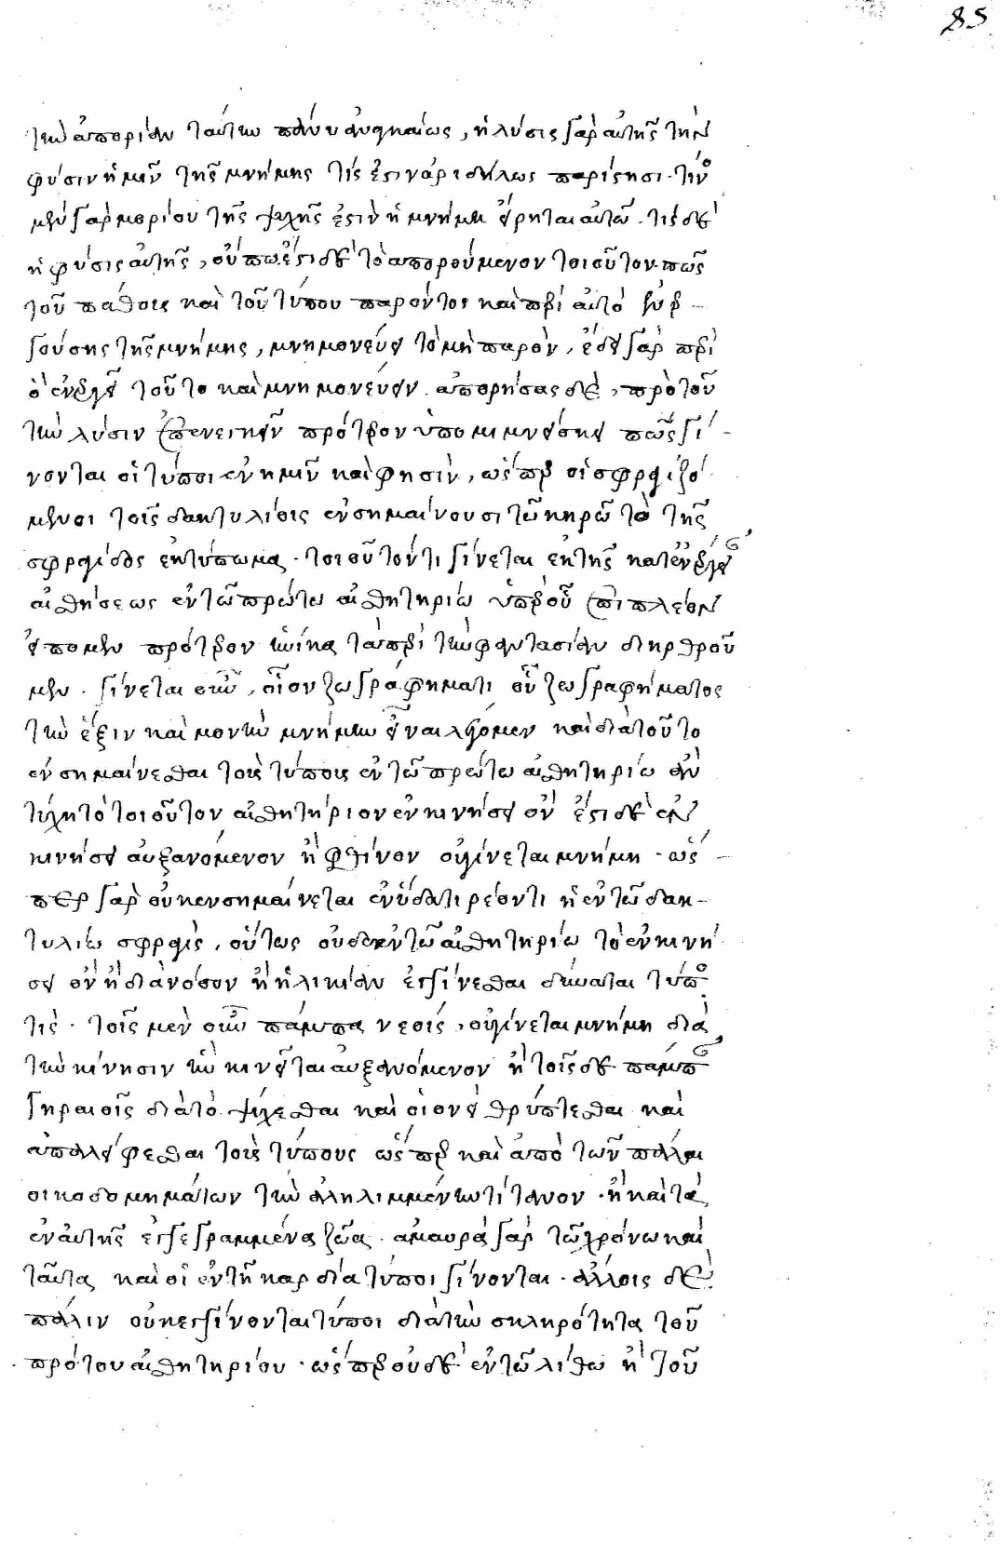 85
τὴν ἀπορίαν ταύτην πάνυ ἀναγκαίως, ἡ λύσις γὰρ αὐτῆς τὴν
φύσιν ἡμῖν τῆς μνήμης τίς ἐστιν ἀριδήλως παρίστησι. τίνος
μὲν γὰρ μορίου τῆς ψυχῆς ἐστὶν ἡ μνήμη εἴρηται αὐτῶ. τίς δὲ
ἡ φύσις αὐτῆς, οὔπω. ἔστι δὲ τὸ ἀπορούμενον τοιοῦτον. πῶς
τοῦ πάθους καὶ τοῦ τύπου παρόντος καὶ περὶ αὐτὸ ἐνερ-
γούσης τῆς μνήμης, μνημονεύει τὸ μὴ παρὸν, ἔδει γὰρ περὶ
ὃ ἐνεργεῖ τοῦτο καὶ μνημονεύειν. ἀπορήσας δὲ, πρὸ τοῦ
τὴν λύσιν ἐπενεγκεῖν πρότερον ὑπομιμνήσκει πῶς γί-
νονται οἱ τύποι ἐν ἡμῖν καὶ φησὶν, ὥσπερ οἱ σφραγιζό
μενοι τοῖς δακτυλίοις ἐνσημαίνουσι τῶ κηρῶ τὸ τῆς
σφραγίδος ἐκτύπωμα. τοιοῦτόν τι γίνεται ἐκ τῆς κατ' ἐνέργειαν
αἰσθήσεως ἐν τῶ πρώτω αἰσθητηρίω ὑπὲρ οὗ ἐπιπλέον
εἴπομεν πρότερον ἡνίκα τὰ περὶ τὴν φαντασίαν διηρθροῦ
μεν. γίνεται οὖν, οἷον ζωγράφημά τι οὗ ζωγραφήματος
τὴν ἕξιν καὶ μονὴν μνήμην εἶναι λέγομεν καὶ διὰ τοῦτο
ἐνσημαίνεσθαι τοὺς τύπους ἐν τῶ πρώτω αἰσθητηρίω ἂν
τύχη τὸ τοιοῦτον αἰσθητήριον ἐν κινήσει ὂν ἔστι δὲ ἐν
κινήσει αὐξανόμενον ἢ φθίνον οὐ γίνεται μνήμη. ὥσ-
περ γὰρ οὐκ ἐνσημαίνεται ἐν ὕδατι ῥέοντι ἡ ἐν τῶ δακ-
τυλίω σφραγὶς, οὕτως οὐδ' ἐν τῶ αἰσθητηρίω τὸ ἐν κινή
σει ὂν ἢ διὰ νόσον ἢ ἡλικίαν ἐγγίνεσθαι δύναται τύπος
τὶς. τοῖς μὲν οὖν πάμπαν νέοις, οὐ γίνεται μνήμη διὰ
τὴν κίνησιν ἣν κινεῖται αὐξανόμενον ἢ τοῖς δὲ πάμπαν
γηραιοῖς διὰ τὸ ψύχεσθαι καὶ οἱονεὶ θρύπτεσθαι καὶ
ἀπαλείφεσθαι τοὺς τύπους ὥσπερ καὶ ἀπὸ τῶν παλαι
οικοδομημάτων τὴν ἀληλιμμένην τίτανον. ἢ καὶ τὰ
ἐν αὐτῆς ἐγγεγραμμένα ζῶα. ἀμαυρὰ γὰρ τῶ χρόνω καὶ
ταῦτα καὶ οἱ ἐν τῆ καρδία τύποι γίνονται. ἄλλοις δὲ
πάλιν οὐκ ἐγγίνονται τύποι διὰ τὴν σκληρότητα τοῦ
πρότου αἰσθητηρίου. ὥσπερ οὐδὲ ἐν τῶ λίθω ἢ τοῦ